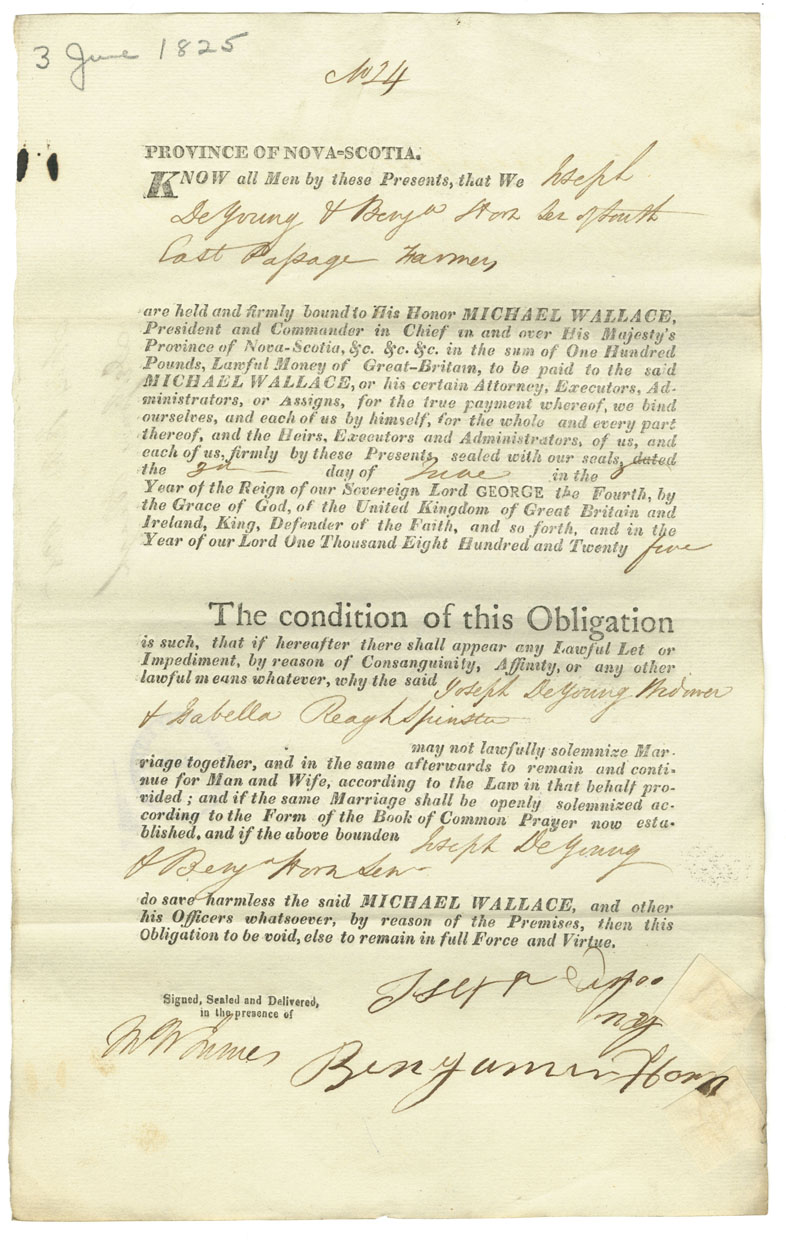 3 June 1825
No 24
PROVINCE OF NOVA-SCOTIA.
KNOW all Men by these Presents, that We Joseph
DeYoung & Benja Horn Sen of South
East Passage Farmers
are held and firmly bound to His Honor MICHAEL WALLACE,
President and Commander in Chief in and over His Majesty's
Province of Nova-Scotia, &c. &c. &c. in the sum of One Hundred
Pounds, Lawful Money of Great-Britain, to be paid to the said
MICHAEL WALLACE, or his certain Attorney, Executors, Ad-
ministrators, or Assigns, for the true payment whereof, we bind
ourselves, and each of us by himself, for the whole and every part
thereof, and the Heirs, Executors and Administrators, of us, and
each of us, firmly by these Presents, sealed with our seals, dated
the 3rd day of June in the
Year of the Reign of our Sovereign Lord GEORGE the Fourth, by
the Grace of God, of the United Kingdom of Great Britain and
Ireland, King, Defender of the Faith, and so forth, and in the
Year of our Lord One Thousand Eight Hundred and Twenty five
The condition of this Obligation
is such, that if hereafter there shall appear any Lawful Let or
Impediment, by reason of Consanguinity, Affinity, or any other
lawful means whatever, why the said Joseph DeYoung Widower
& Isabella Reagh Spinster
may not lawfully solemnize Mar-
riage together, and in the same afterwards to remain and conti-
nue for Man and Wife, according to the Law in that behalf pro-
vided; and if the same Marriage shall be openly solemnized ac-
cording to the Form of the Book of Common Prayer now esta-
blished, and if the above bounden Joseph DeYoung
& Benja Horn Sen
do save harmless the said MICHAEL WALLACE, and other
his Officers whatsoever, by reason of the Premises, then this
Obligation to be void, else to remain in full Force and Virtue.
Signed, Sealed and Delivered,
in the presence of
Benjamin Horn